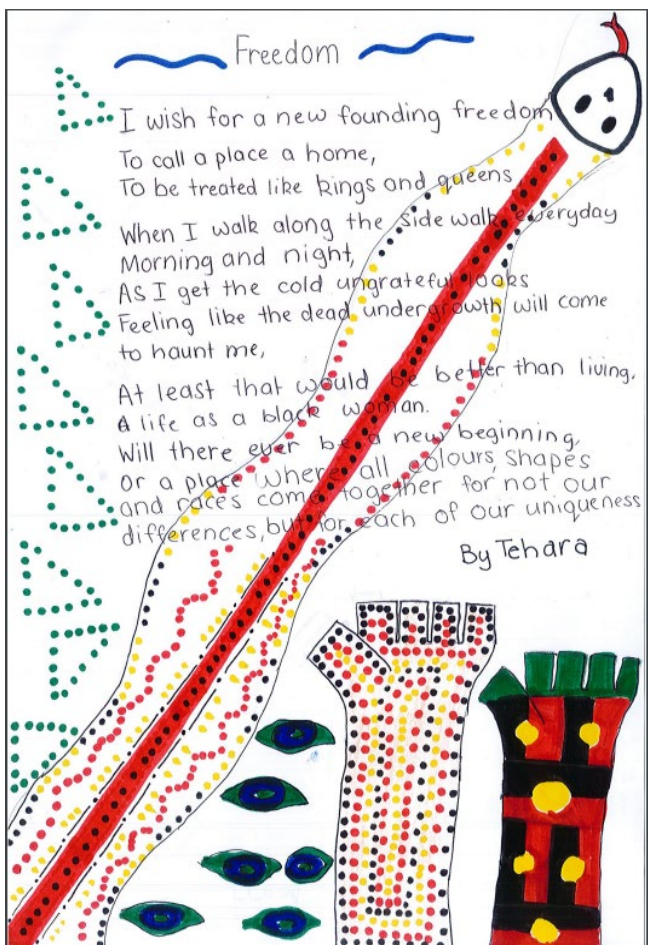 Freedom
I wish for a new founding freedom
To call a place a home,
To be treated like kings and queens
When I walk along the side walk everyday
Morning and night,
As I get the cold ungrateful looks
Feeling like the dead undergrowth will come
to haunt me,
At least that would be better than living,
A life as a black woman.
Will there ever be a new beginning,
or a place where all colours, shapes
and races come together for not our
differences, but for each of our uniqueness
By Tehara